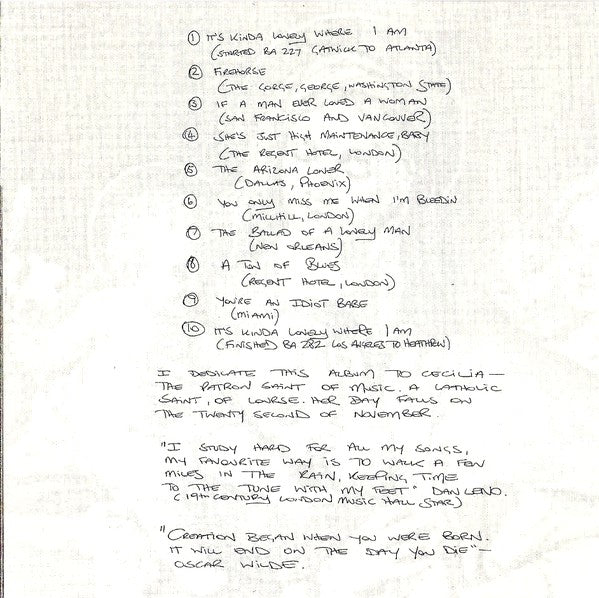 ① IT'S KINDA LONELY WHERE I AM
(STARTED BA 227 GATWICK TO ATLANTA)
② FIREHORSE
(THE GORGE, GEORGE, WASHINGTON STATE)
③ IF A MAN EVER LOVED A WOMAN
(SAN FRANCISCO AND VANCOUVER)
④ SHE'S JUST HIGH MAINTENANCE, BABY
(THE REGENT HOTEL, LONDON)
⑤ THE ARIZONA LONER
(DALLAS, PHOENIX)
⑥ YOU ONLY MISS ME WHEN I'M BLEEDIN
(MILLHILL, LONDON)
⑦ THE BALLAD OF A LONELY MAN
(NEW ORLEANS)
⑧ A TON OF BLUES
(REGENT HOTEL, LONDON)
⑨ YOU'RE AN IDIOT BABE
(MIAMI)
⑩ IT'S KINDA LONELY WHERE I AM
(FINISHED BA 282 LOS ANGELES TO HEATHROW)
I DEDICATE THIS ALBUM TO CECILIA —
THE PATRON SAINT OF MUSIC. A CATHOLIC
SAINT, OF COURSE. HER DAY FALLS ON
THE TWENTY SECOND OF NOVEMBER.
"I STUDY HARD FOR ALL MY SONGS,
MY FAVOURITE WAY IS TO WALK A FEW
MILES IN THE RAIN, KEEPING TIME
TO THE TUNE WITH MY FEET." DAN LENO.
(19TH CENTURY LONDON MUSIC HALL STAR)
"CREATION BEGAN WHEN YOU WERE BORN.
IT WILL END ON THE DAY YOU DIE" —
OSCAR WILDE.